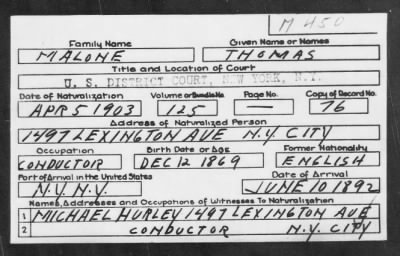 M 450
Family Name Given Name or Names
MALONE THOMAS
Title and Location of Court
U. S. DISTRICT COURT, NEW YORK, N.Y.
Date of Naturalization Volume or Bundle No Page No. Copy of Record No.
APR 5 1903 125 — 76
Address of Naturalized Person
1497 LEXINGTON AVE N.Y. CITY
Occupation Birth Date or Age Former Nationality
CONDUCTOR DEC 12 1869 ENGLISH
Port of Arrival in the United States Date of Arrival
N.Y. N.Y. JUNE 10 1892
Names, Addresses and Occupations of Witnesses To Naturalization
1 MICHAEL HURLEY 1497 LEXINGTON AVE
2 CONDUCTOR N.Y. CITY